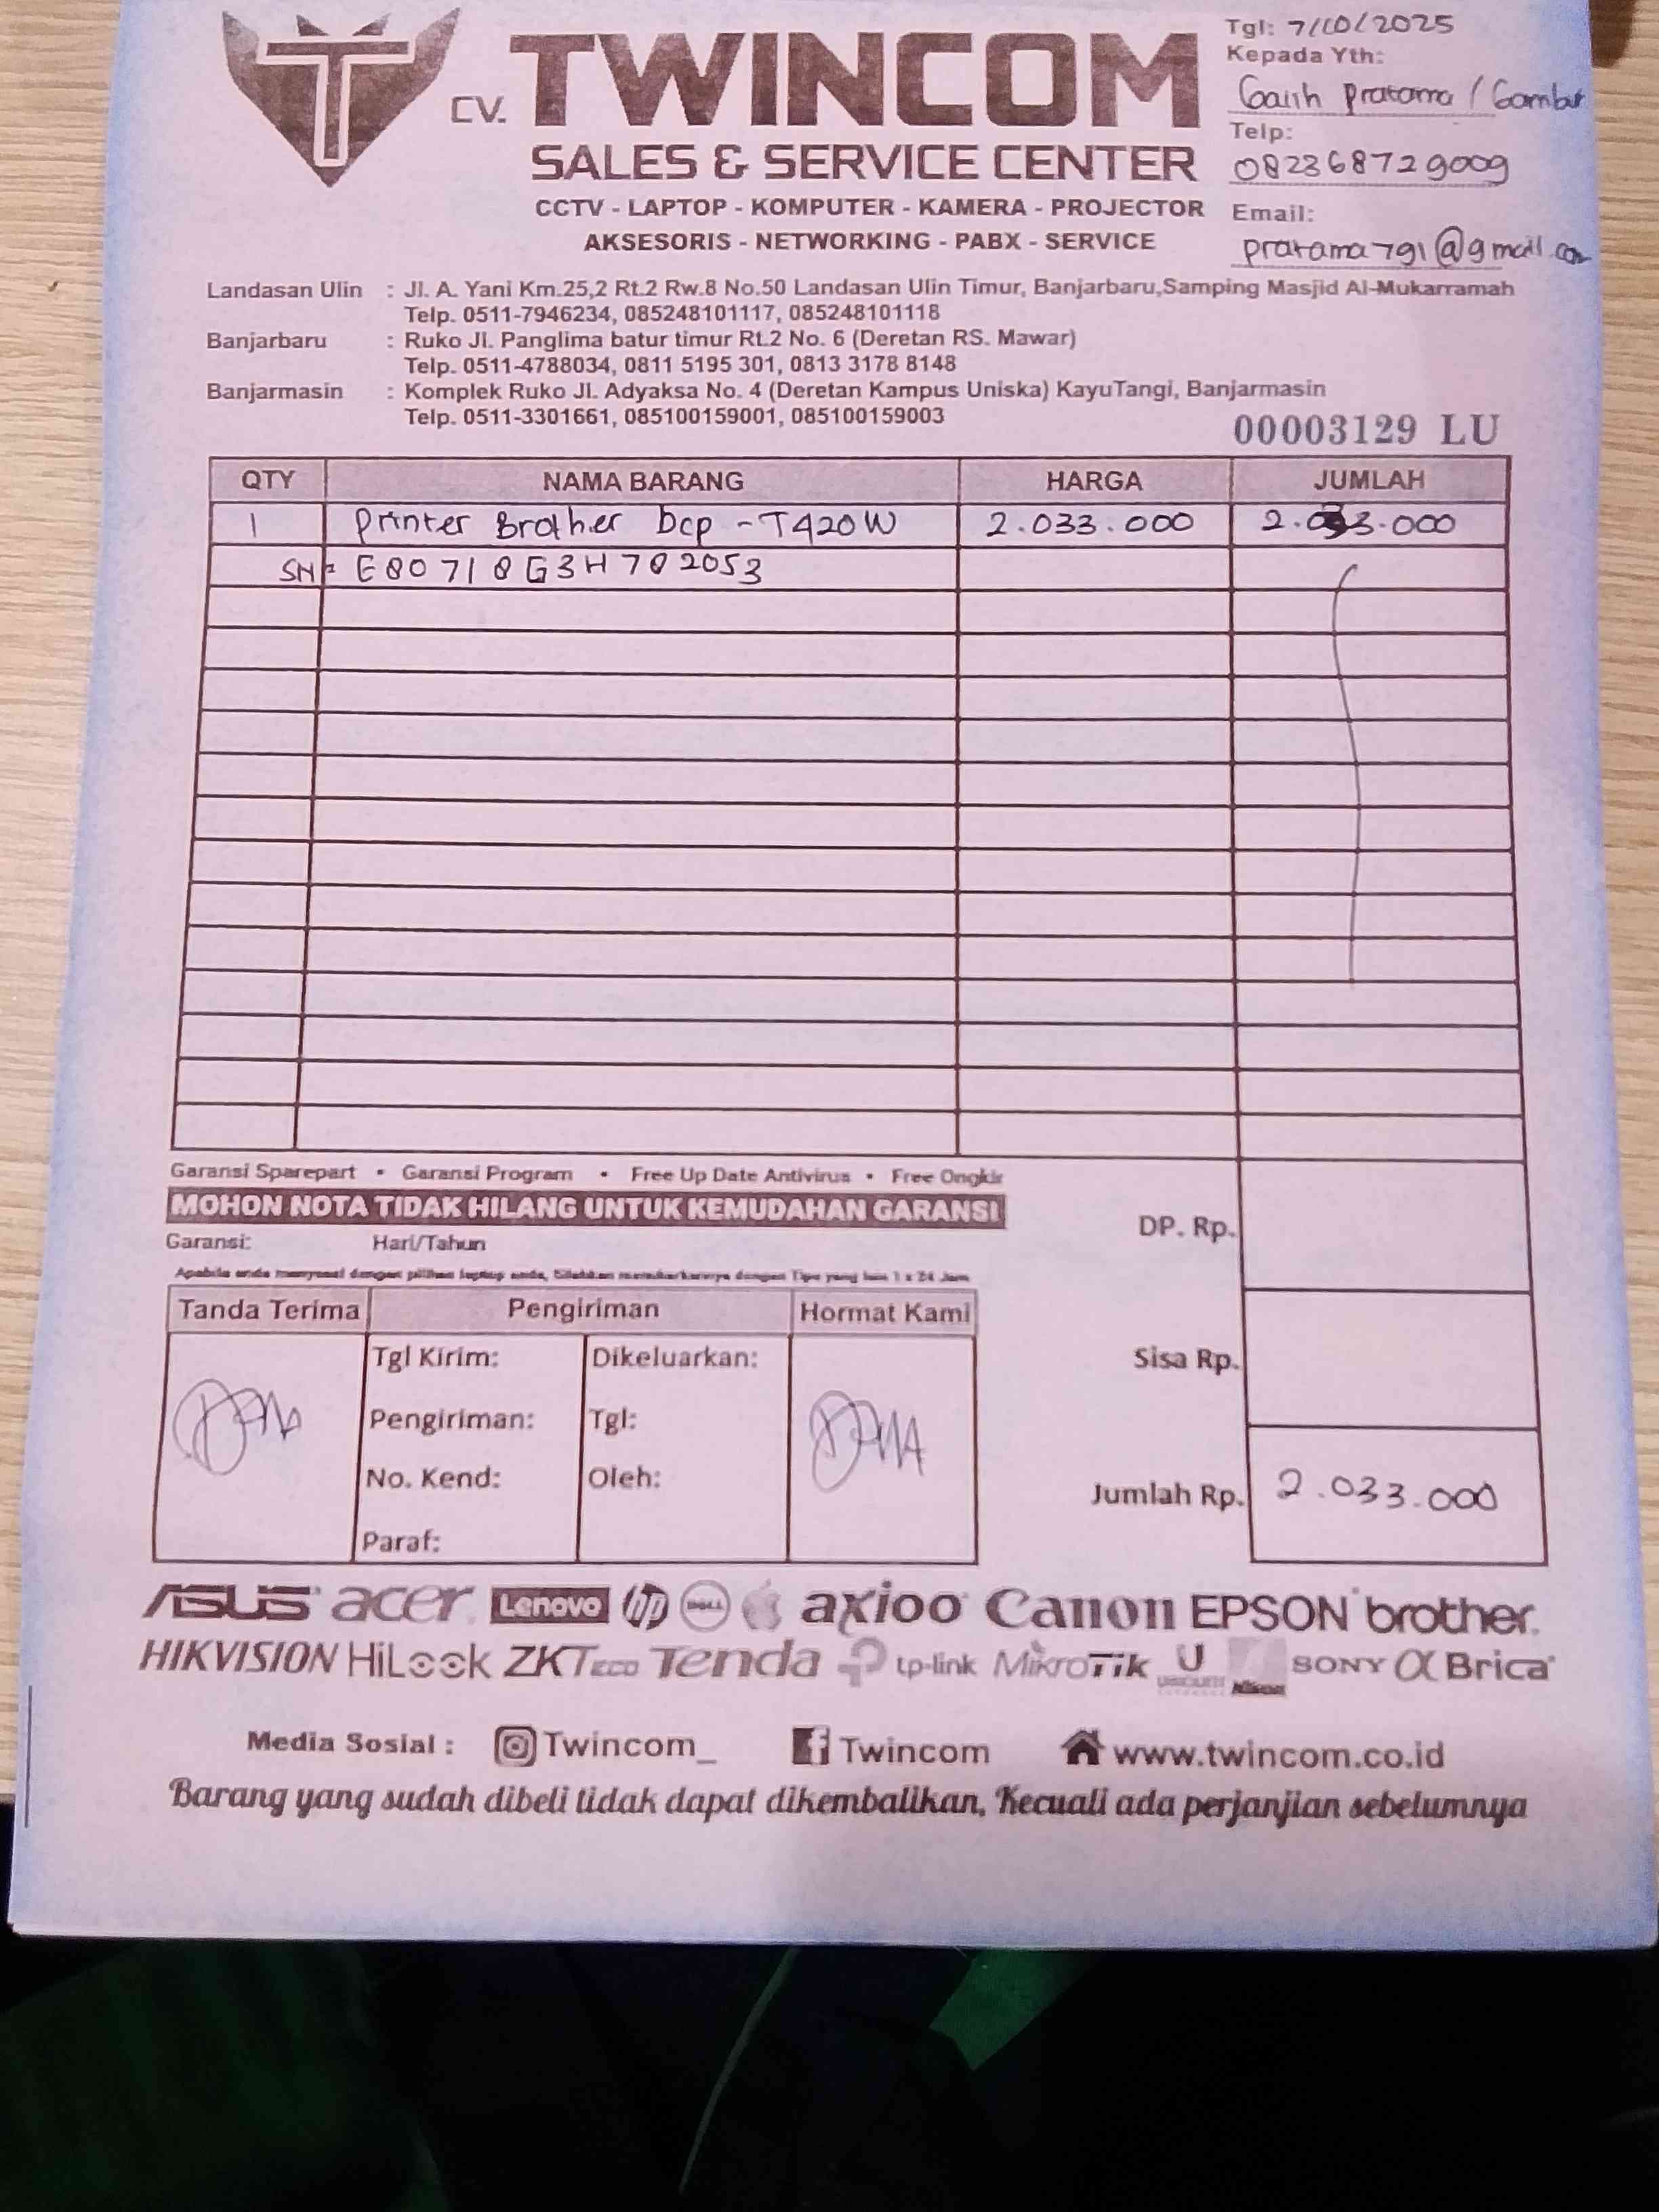 CV. TWINCOM
SALES & SERVICE CENTER
CCTV - LAPTOP - KOMPUTER - KAMERA - PROJECTOR
AKSESORIS - NETWORKING - PABX - SERVICE
Tgl: 7/10/2025
Kepada Yth:
Galih Pratama / Gambut
Telp:
082368729009
Email:
pratama791@gmail.com
Landasan Ulin : Jl. A. Yani Km.25,2 Rt.2 Rw.8 No.50 Landasan Ulin Timur, Banjarbaru,Samping Masjid Al-Mukarramah
Telp. 0511-7946234, 085248101117, 085248101118
Banjarbaru : Ruko Jl. Panglima batur timur Rt.2 No. 6 (Deretan RS. Mawar)
Telp. 0511-4788034, 0811 5195 301, 0813 3178 8148
Banjarmasin : Komplek Ruko Jl. Adyaksa No. 4 (Deretan Kampus Uniska) KayuTangi, Banjarmasin
Telp. 0511-3301661, 085100159001, 085100159003
00003129 LU
QTY NAMA BARANG HARGA JUMLAH
1 Printer Brother Dcp - T420W 2.033.000 2.033.000
SN= E80718G3H782053
Garansi Sparepart • Garansi Program • Free Up Date Antivirus • Free Ongkir
MOHON NOTA TIDAK HILANG UNTUK KEMUDAHAN GARANSI
Garansi: Hari/Tahun
Apabila anda menyesal dengan pilihan laptop anda, Silahkan menukarkannya dengan Tipe yang lain 1 x 24 Jam
DP. Rp.
Tanda Terima Pengiriman Hormat Kami
Tgl Kirim: Dikeluarkan:
Sisa Rp.
Pengiriman: Tgl:
No. Kend: Oleh:
Jumlah Rp. 2.033.000
Paraf:
ASUS acer Lenovo hp DELL axioo Canon EPSON brother
HIKVISION HiLook ZKTECO Tenda tp-link MikroTik U Nikon SONY α Brica
Media Sosial : Twincom_ Twincom www.twincom.co.id
Barang yang sudah dibeli tidak dapat dikembalikan, Kecuali ada perjanjian sebelumnya